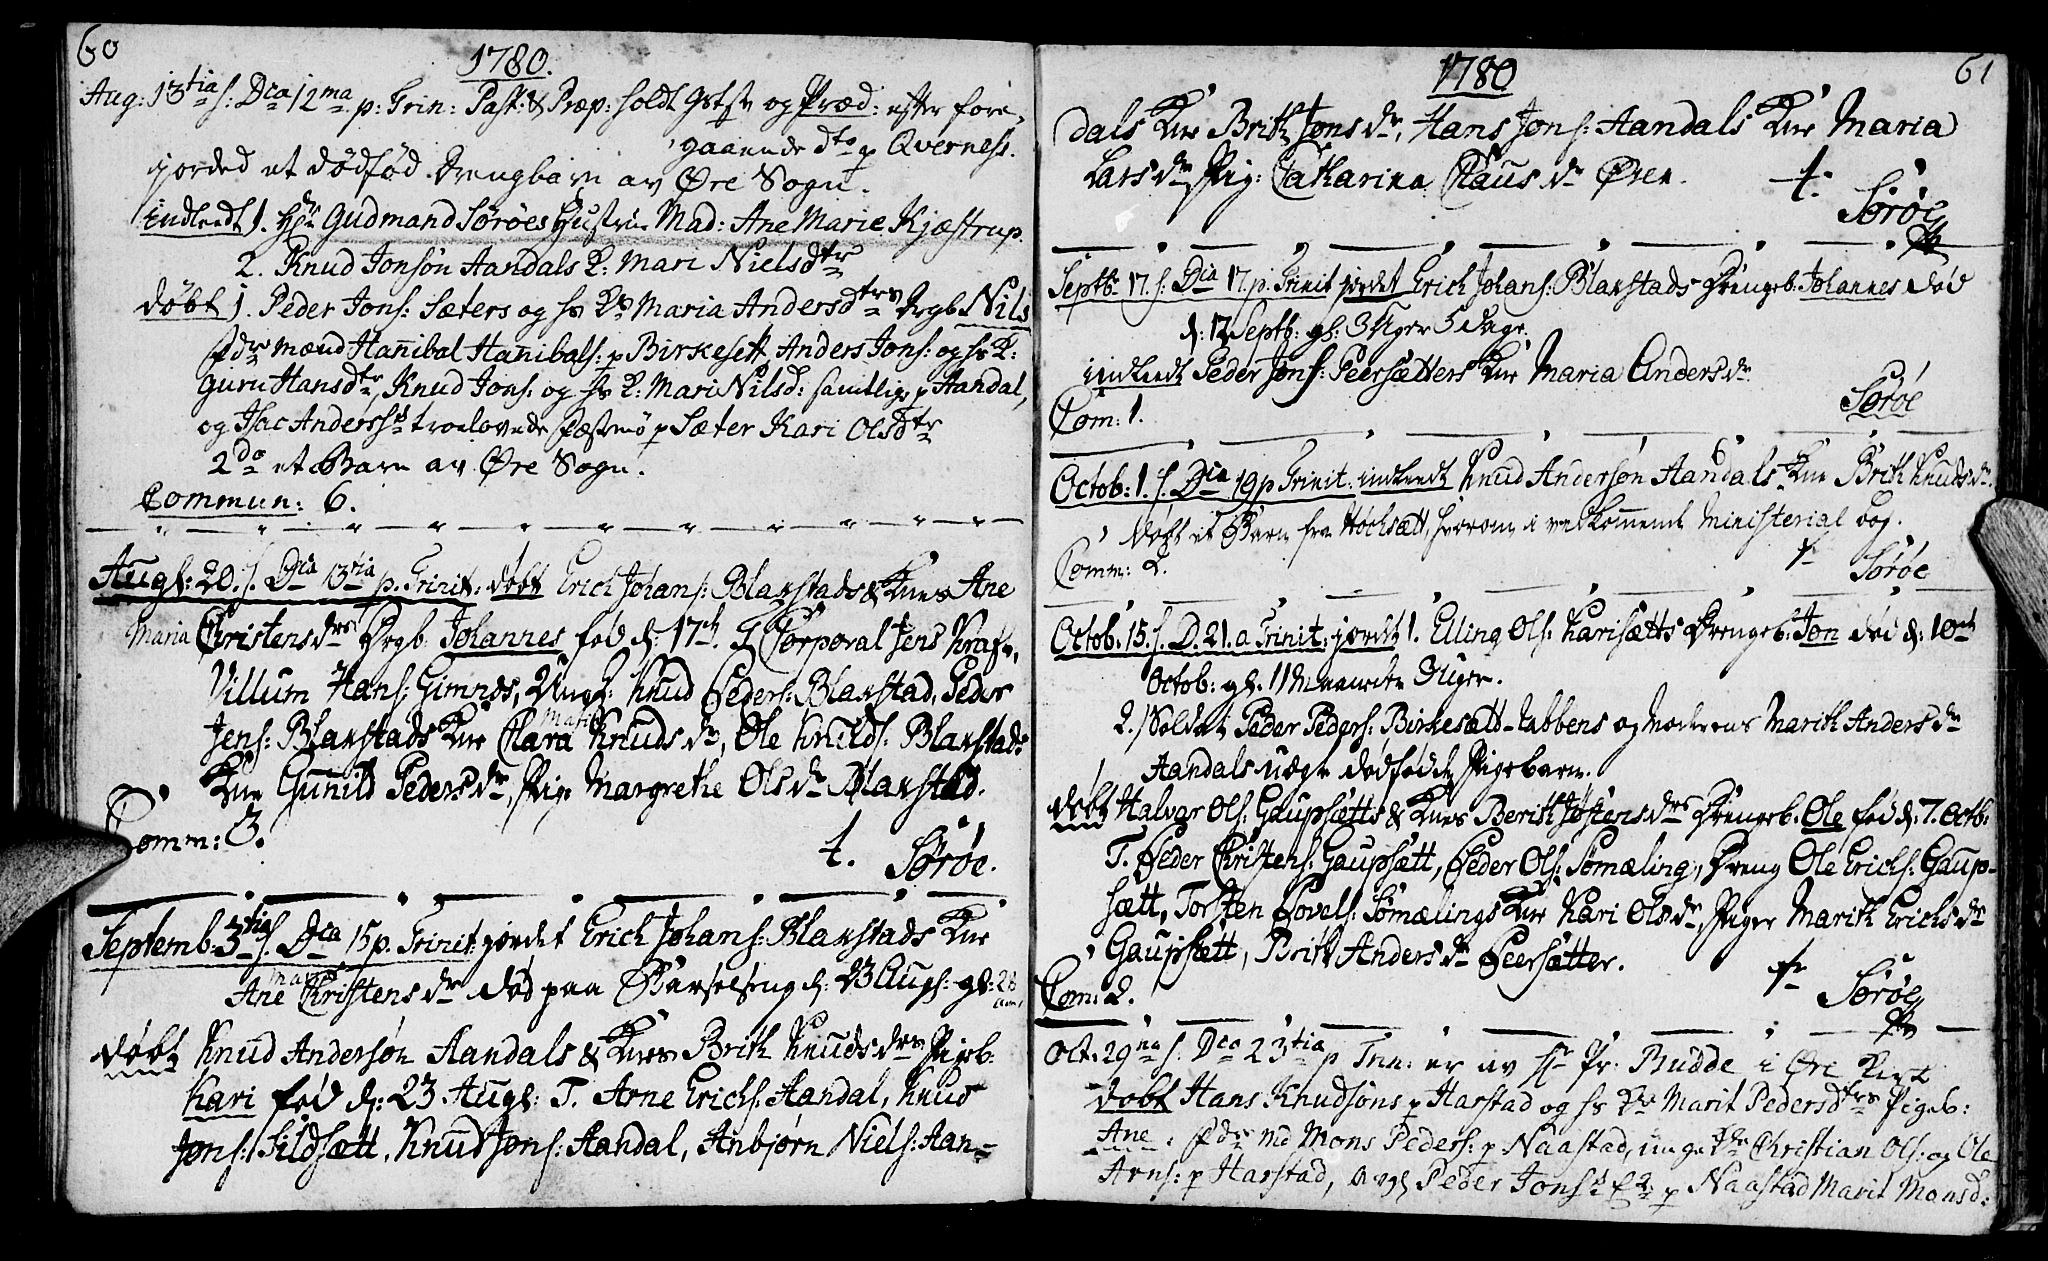 60
1780.
Aug: 13tia S: Dca 12ma p: Trin: Past: & Præp: holdt Gstste og Præd: efter fore-
gaaende dto p Qverness.
jorded et dødfød Drengbarn av Øre Sogn.
indleedt 1. Hr Gudmand Sørøes Hustru Mad: Ane Marie Kjæstrup.
2. Knud Jonsøn Aandals K: Mari Nielsdtr
døbt 1. Peder Jons: Sæters og hs Ks Maria Andersdtrs Drgb Nils
Fdrs mænd Hannibal Hannibals: p Birkesett Anders Jons: og hs K:
Guru Hansdtr, Knud Jons: og hs K: Mari Nilsd: samtlige p Aandal,
og Isac Anderss troelovede Fæstmø p Sæter Kari Olsdtr
2do et Barn av Øre Sogn.
Commun: 6.
Augt: 20. S. Dca 13tia p. Trinit: døbt Erich Johans: Blakstads & Knes Ane
Maria Christensdrs Drgb. Johannes fød d: 17ch. T. Corporal Jens Kraft,
Villum Hans: Gimnes, Ungk: Knud Peders: Blakstad, Peder
Jens: Blakstads Kne Clara Marie Knudsdr, Ole Knuds: Blakstads
Kne Gunild Pedersdr, Pig: Margrethe Olsdr Blakstad.
Comm: 3.
t. Sørøe.
Septemb: 3tia S. Dca 15 p. Trinit: jordet Erich Johans: Blakstads Kne
Ane Maria Christensdr død paa Barselseng d: 23 Augs: gl: 28
døbt Knud Andersøn Aandals & Knes Brith Knudsdrs Pigeb:
Kari fød d: 23 Augs: T. Arne Erichs: Aandal, Knud
Jons: Sildsætt, Knud Jons: Aandal, Anbjørn Niels: Aan-
1780
61
dals Kne Brith Jonsdr, Hans Jons: Aandals Kne Maria
Larsdr, Pig: Catharina Clausdr Øren.
t. Sørøe
Septb: 17. S. Dca 17. p. Trinit jordet Erich Johans: Blakstads Drengeb: Johannes død
d: 12 Septb: gl: 3 Uger 5 Dage.
indleedt Peder Jons: Peersætters Kne Maria Andersdr.
Com: 1.
Sørøe
Octob: 1. S. Dca 19 p Trinit: indleedt Knud Andersøn Aandals Kne Brith Knudsdr.
døbt et Barn fra Høchsætt, hvorom i vedkommende Ministerial bog.
Comm: 2.
Sørøe
Octob: 15. S. D. 21. a Trinit: jordet 1. Elling Ols: Karisætts Drengeb: Jon død d: 10de
Octob: gl. 11 Maaneder Uger.
2. Soldat Peder Peders: Birkesætt-labbens og Moderens Marith Andersdr
Aandals uægte dødfødde Pigebarn.
døbt Halvar Ols: Gaupsætts & Knes Berith Jostensdrs Drengeb. Ole fød d: 7. Octb:
T. Peder Christens: Gaupsætt, Peder Ols: Sømæling, Dreng Ole Erichs: Gaup-
sætt, Torsten Povels: Sømælings Kne Kari Olsdr, Piger Marith Erichsdr
Gaupsætt, Brith Andersdr Peersætter.
Com: 2.
Sørøe
Oct: 29na S: Dca 23tia p Trin: er av Hr Pr: Budde i Øre Kirke
døbt Hans Knudsøns p Harstad og hs Ks Marit Pedersdtrs Pigeb:
Ane: Fdr Md Mons Peders: p Naastad, unge Christian Ols: og Ole
Arns: p Harstad, Peder Jons K: p Naastad Marit Monsd: